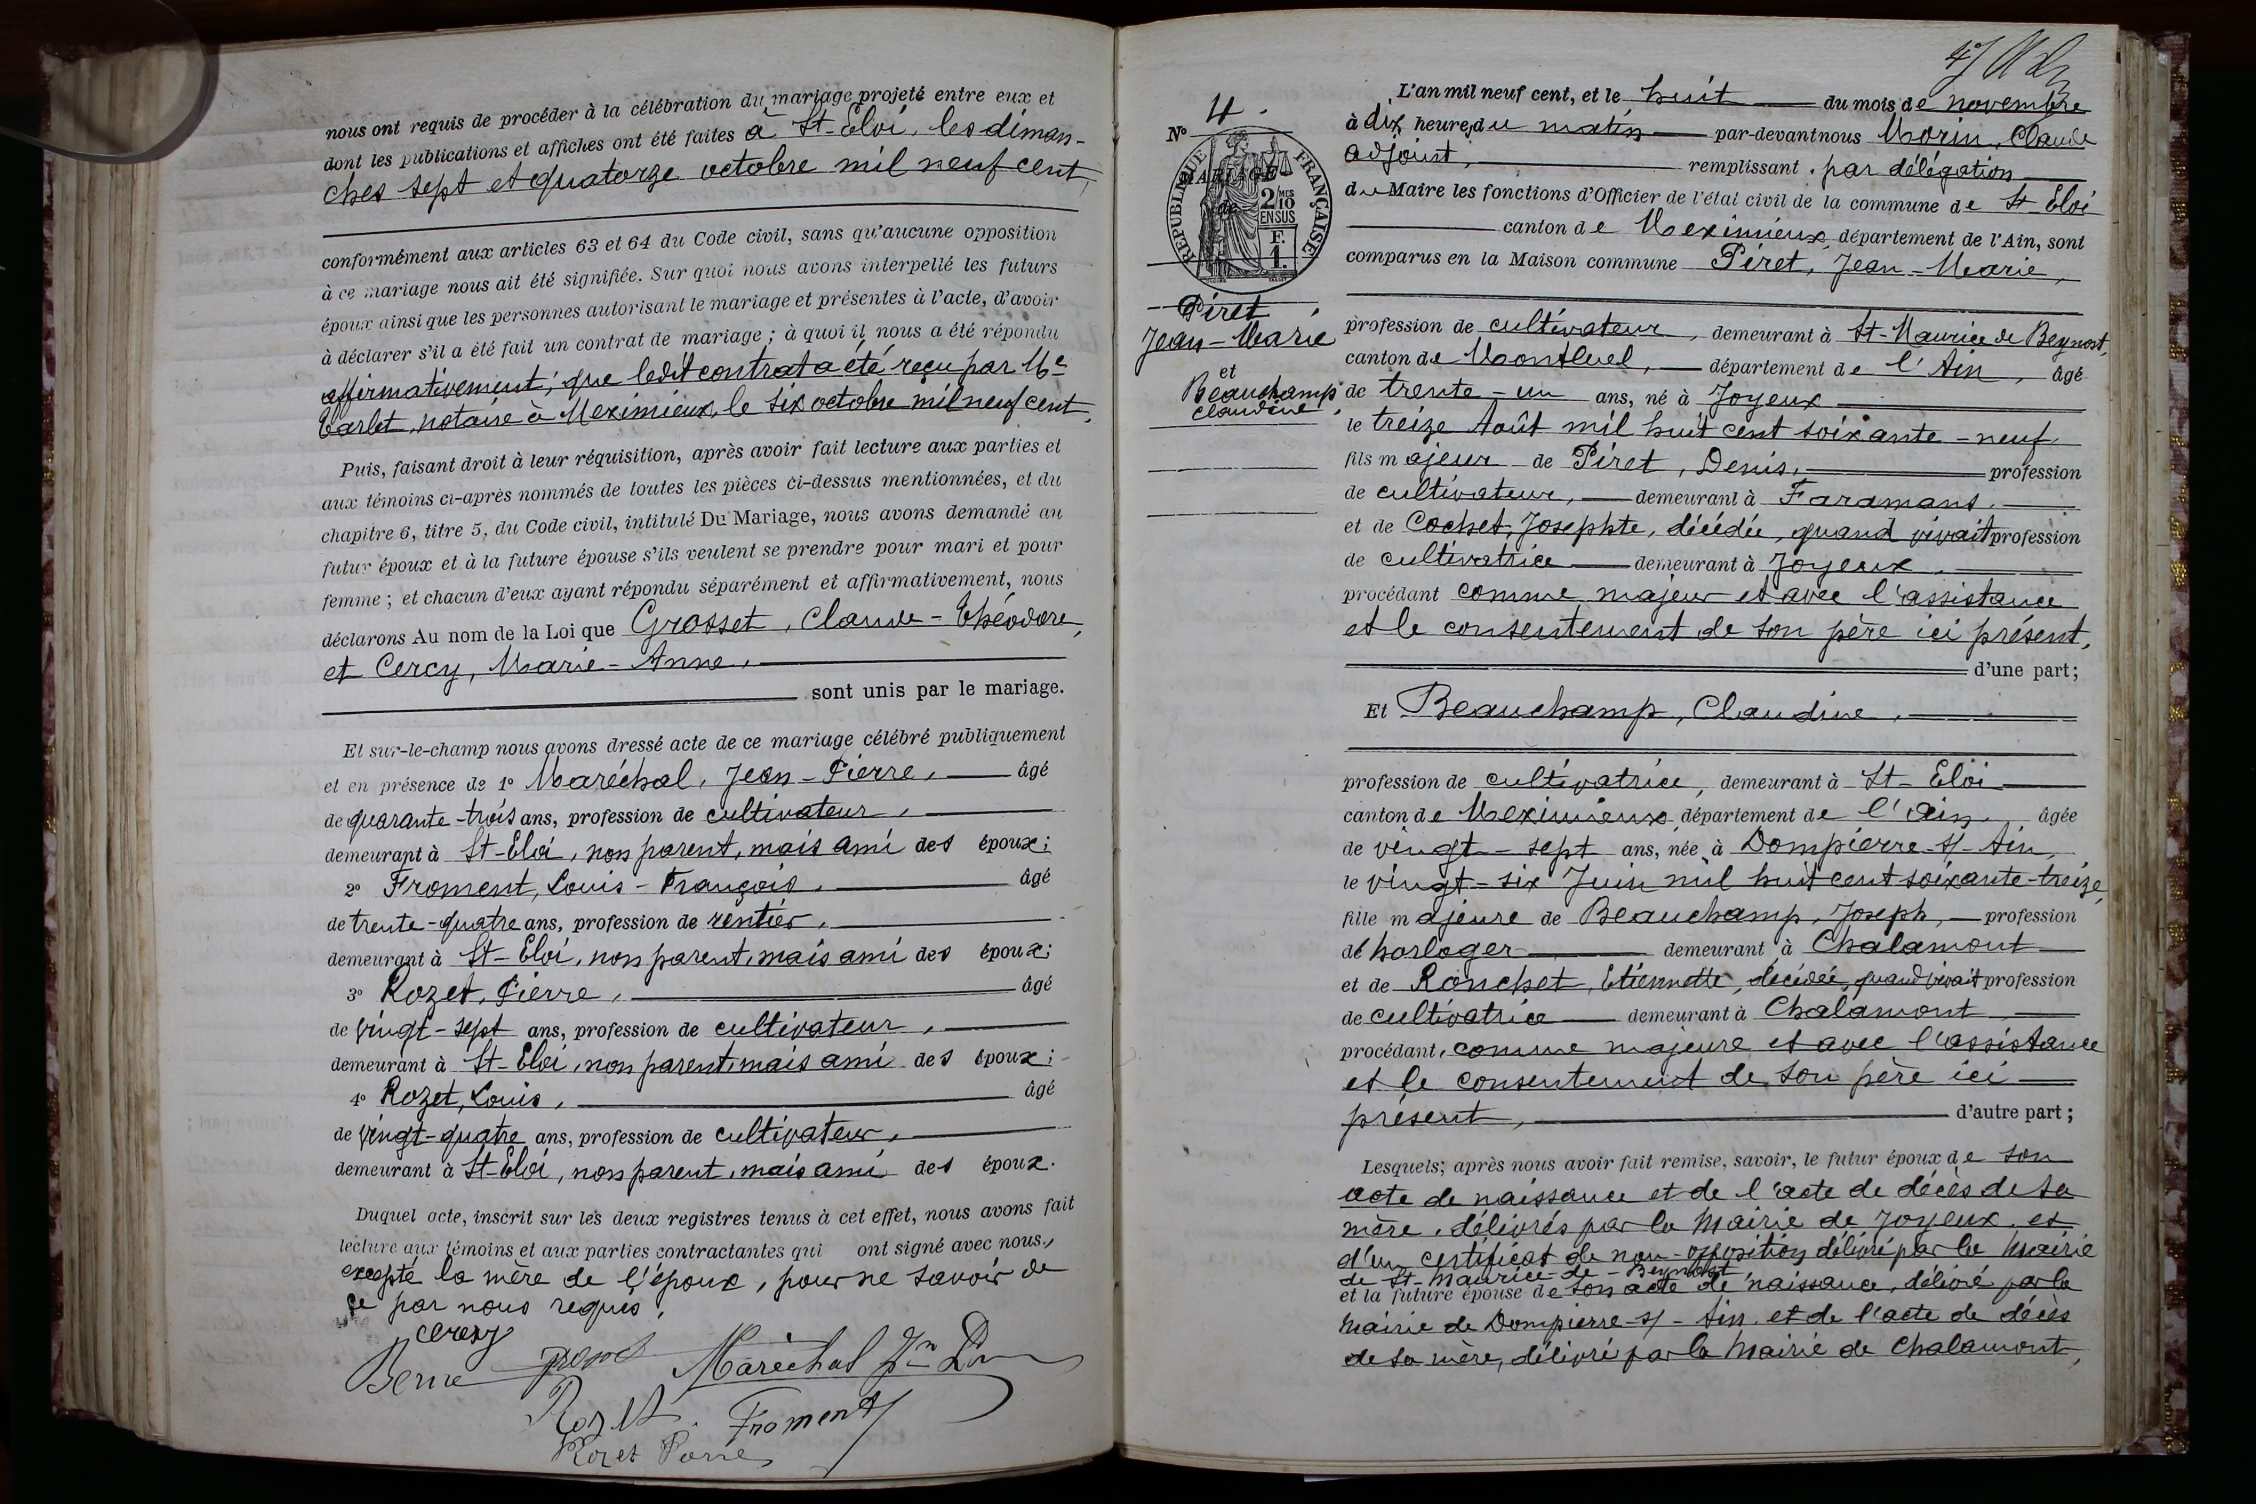 nous ont requis de procéder à la célébration du mariage projeté entre eux et
dont les publications et affiches ont été faites à St-Eloi, les diman-
ches sept et quatorze octobre mil neuf cent,
conformément aux articles 63 et 64 du Code civil, sans qu'aucune opposition
à ce mariage nous ait été signifiée. Sur quoi nous avons interpellé les futurs
époux ainsi que les personnes autorisant le mariage et présentes à l'acte, d'avoir
à déclarer s'il a été fait un contrat de mariage ; à quoi il nous a été répondu
affirmativement, que ledit contrat a été reçu par Me
notaire à Meximieux, le six octobre mil neuf cent,
Puis, faisant droit à leur réquisition, après avoir fait lecture aux parties et
aux témoins ci-après nommés de toutes les pièces ci-dessus mentionnées, et du
chapitre 6, titre 5, du Code civil, intitulé Du Mariage, nous avons demandé au
futur époux et à la future épouse s'ils veulent se prendre pour mari et pour
femme ; et chacun d'eux ayant répondu séparément et affirmativement, nous
déclarons Au nom de la Loi que Grosset, Claude-Théodore,
et Cercy, Marie-Anne,
sont unis par le mariage.
Et sur-le-champ nous avons dressé acte de ce mariage célébré publiquement
et en présence de 1° Maréchal, Jean-Pierre, âgé
de quarante-trois ans, profession de cultivateur,
demeurant à St-Eloi, non parent, mais ami des époux ;
2° Froment, Louis-François, âgé
de trente-quatre ans, profession de rentier,
demeurant à St-Eloi, non parent, mais ami des époux ;
3° Rozet, Pierre, âgé
de vingt-sept ans, profession de cultivateur,
demeurant à St-Eloi, non parent, mais ami des époux ;
4° Rozet, Louis, âgé
de vingt-quatre ans, profession de cultivateur,
demeurant à St-Eloi, non parent, mais ami des époux.
Duquel acte, inscrit sur les deux registres tenus à cet effet, nous avons fait
lecture aux témoins et aux parties contractantes qui ont signé avec nous,
excepté la mère de l'époux, pour ne savoir de
ce par nous requis.
Cercy
Maréchal
Rozet Froment
Rozet Pierre
N° 4.
MARIAGE
de
RÉPUBLIQUE FRANÇAISE
2/10 MES
EN SUS
F.
1.
Piret
Jean-Marie
et
Beauchamp
Claudine
L'an mil neuf cent, et le huit du mois de novembre
à dix heures du matin par-devant nous Morin, Claude
adjoint, remplissant par délégation
du Maire les fonctions d'Officier de l'état civil de la commune de St-Eloi
canton de Meximieux, département de l'Ain, sont
comparus en la Maison commune Piret, Jean-Marie,
profession de cultivateur, demeurant à St-Maurice de Beynost,
canton de Montluel, département de l'Ain, âgé
de trente-un ans, né à Joyeux
le treize Août mil huit cent soixante-neuf
fils majeur de Piret, Denis, profession
de cultivateur, demeurant à Faramans,
et de Cochet, Josephte, décédée, quand vivait profession
de cultivatrice demeurant à Joyeux,
procédant comme majeur et avec l'assistance
et le consentement de son père ici présent,
d'une part ;
Et Beauchamp, Claudine,
profession de cultivatrice, demeurant à St-Eloi
canton de Meximieux, département de l'ain, âgée
de vingt-sept ans, née à Dompierre-s/-Ain,
le vingt-six Juin mil huit cent soixante-treize,
fille majeure de Beauchamp, Joseph, profession
de horloger demeurant à Chalamont
et de Ronchet, Etiennette, décédée, quand vivait profession
de cultivatrice demeurant à Chalamont
procédant, comme majeure et avec l'assistance
et le consentement de son père ici
présent, d'autre part ;
Lesquels ; après nous avoir fait remise, savoir, le futur époux de son
acte de naissance et de l'acte de décès de sa
mère, délivrés par la Mairie de Joyeux, et
d'un certificat de non-opposition délivré par la Mairie
de St-Maurice-de-Beynost
et la future épouse de son acte de naissance, délivré par la
Mairie de Dompierre-s/-Ain et de l'acte de décès
de sa mère, délivré par la Mairie de Chalamont,